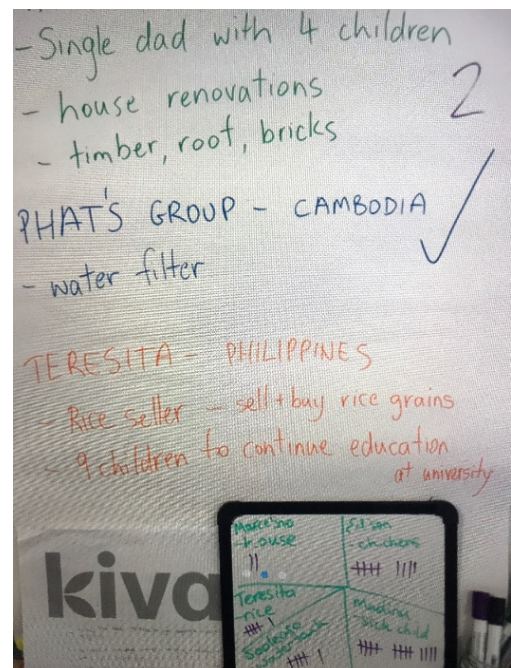 - Single dad with 4 children
- house renovations
2
- timber, roof, bricks
PHAT'S GROUP - CAMBODIA
- water filter
TERESITA - PHILIPPINES
- Rice seller - sell + buy rice grains
- 9 children to continue education
at university
kiva
house
Edison
- chickens
Teresita
rice
sick child